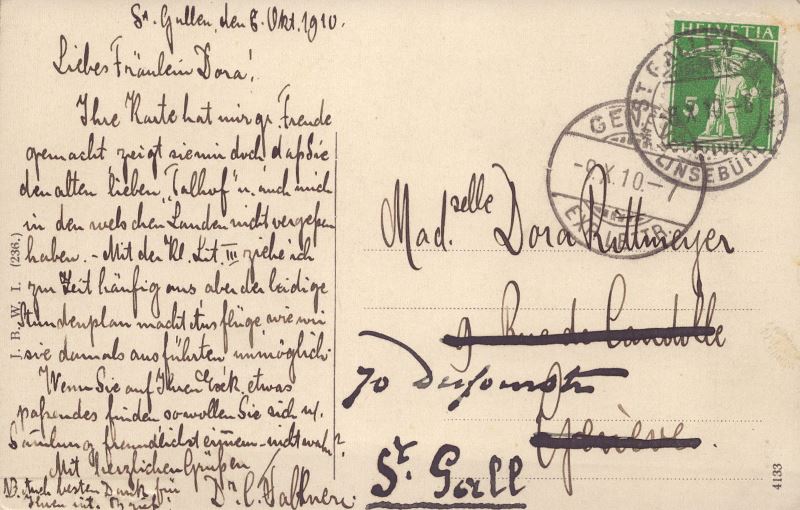 St. Gallen, den 8. Okt. 1910.
Liebes Fräulein Dora!
Ihre Karte hat mir gr. Freude
gemacht zeigt sie mir doch daß Sie
den alten lieben "Talhof" u. auch mich
in den welschen Landen nicht vergeßen
haben. - Mit der Kl. Lit. III ziehe ich
zur Zeit häufig aus aber der leidige
Stundenplan macht Ausflüge, wie wir
sie damals ausführten unmöglich.
Wenn Sie auf Ihren etwas
paßendes finden so wollen Sie sich m.
Sammlung freundlichst erinnern - nicht wahr?
Mit herzlichen Grüßen
Dr. C.
NB. Auch besten Dank für
Ihren int. Brief.
HELVETIA
5
ST. GALLEN
LINSEBÜHL
-8.X.10.-
GENÈVE
-9.X.10.-7
EXP. LETTR.
Mad.selle Dora Rittmeyer
9 Rue de Candolle
70 Dufourstr
Genève.
St. Gall
I. B. W. I. (236.)
4133